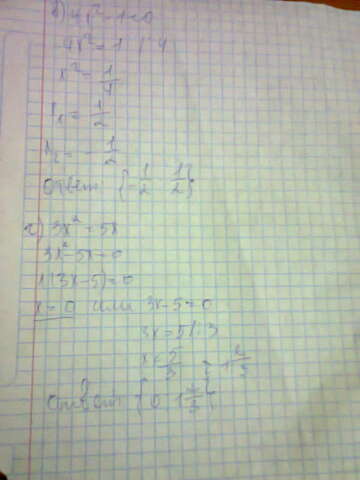 б) 4x² - 1 = 0
4x² = 1 | :4
x² = 1/4
x₁ = 1/2
x₂ = - 1/2
ответ {-1/2 1/2}
г) 3x² = 5x
3x² - 5x = 0
x(3x - 5) = 0
x = 0 или 3x - 5 = 0
3x = 5 | : 3
x = 5/3 = 1 2/3
ответ {0 1 2/3}